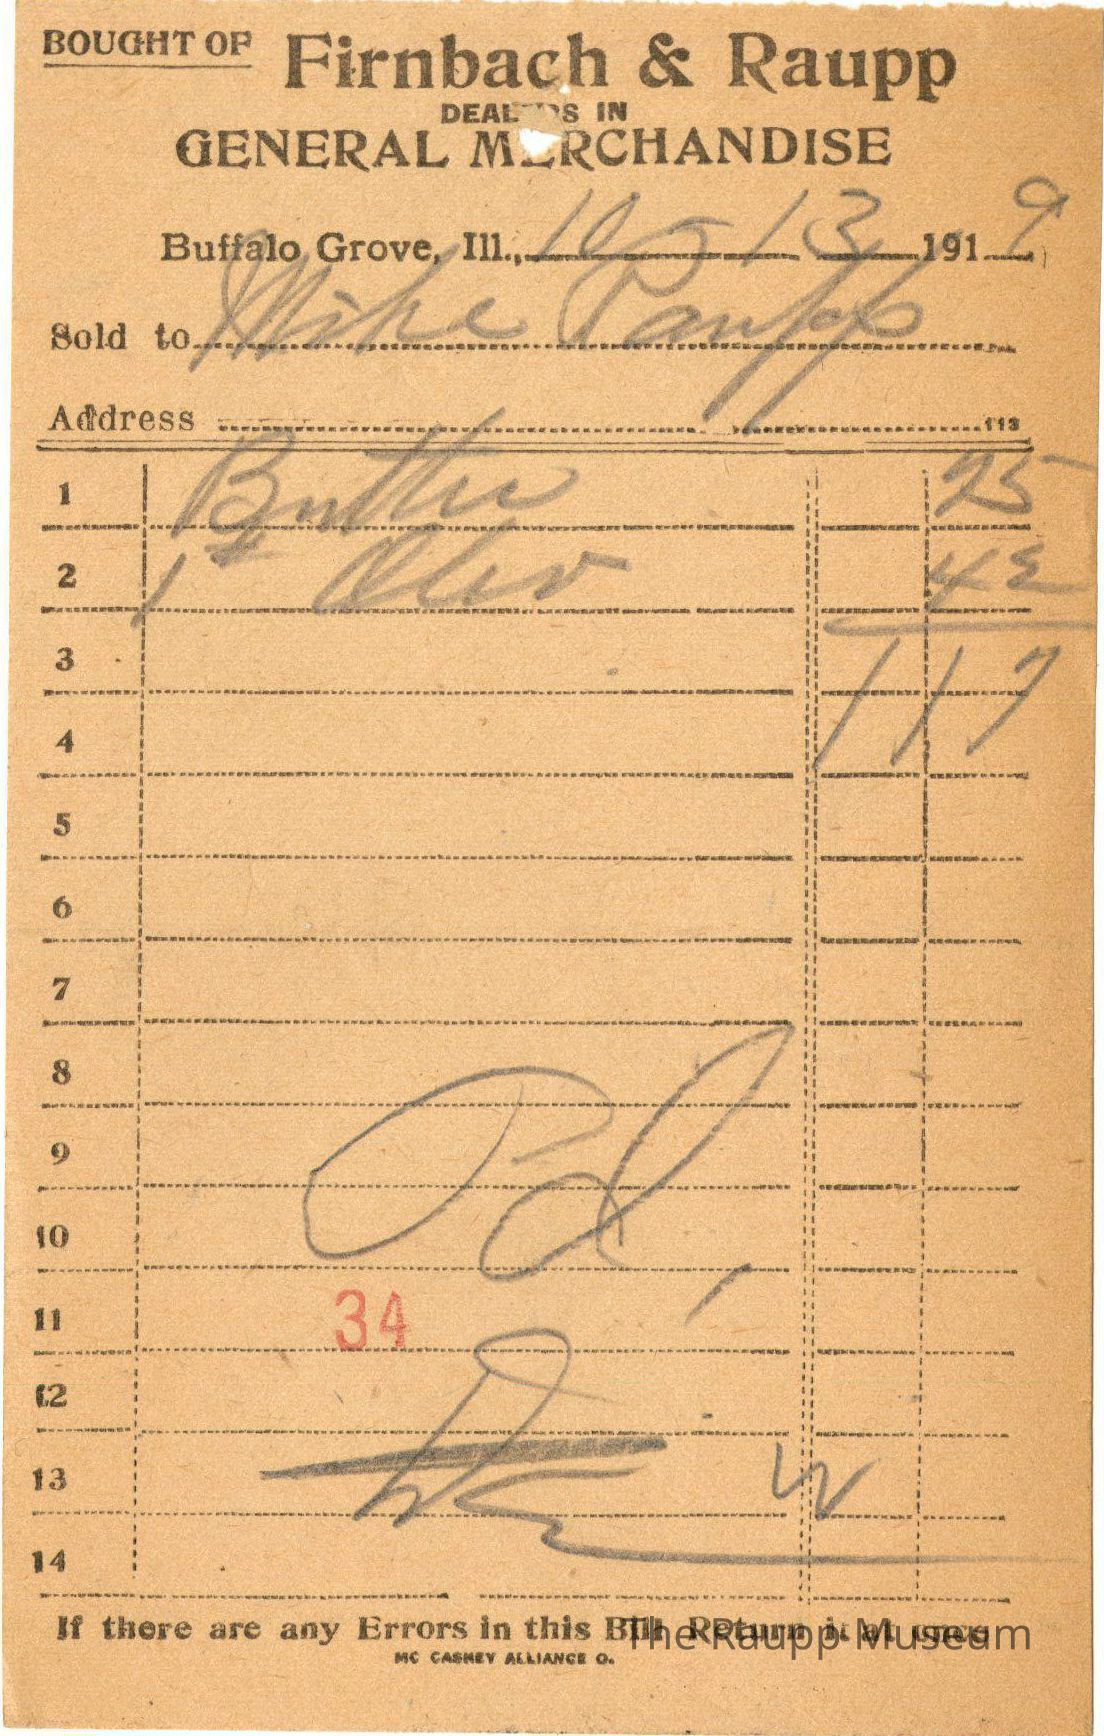 BOUGHT OF Firnbach & Raupp
DEALERS IN
GENERAL MERCHANDISE
Buffalo Grove, Ill., 10 - 13 1919
Sold to Mike Raupp
Address 113
1 Butter 75
2 1 # Oleo 42
3 117
4
5
6
7
8
9 Pd,
10
11 34
12
13
14
If there are any Errors in this Bill Return it at once
The Raupp Museum
MC CASKEY ALLIANCE O.